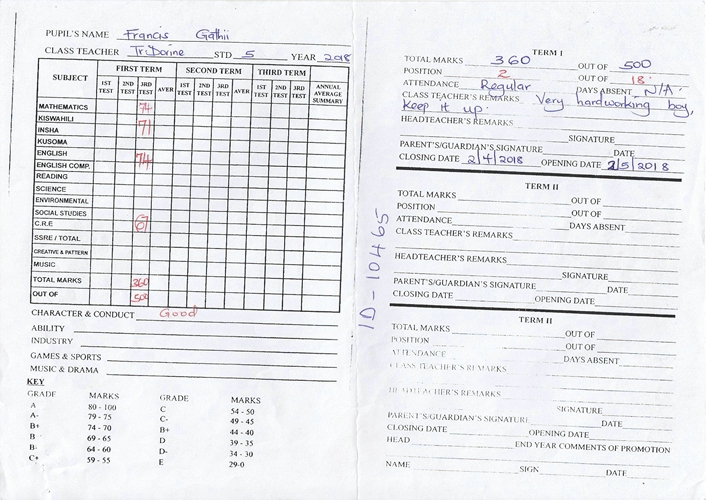 PUPIL'S NAME Francis Gathii
CLASS TEACHER Tr. Dorine STD 5 YEAR 2018
SUBJECT FIRST TERM SECOND TERM THIRD TERM
1ST TEST 2ND TEST 3RD TEST AVER 1ST TEST 2ND TEST 3RD TEST AVER 1ST TEST 2ND TEST 3RD TEST ANNUAL AVERAGE SUMMARY
MATHEMATICS 74
KISWAHILI
INSHA 71
KUSOMA
ENGLISH
ENGLISH COMP. 74
READING
SCIENCE
ENVIRONMENTAL
SOCIAL STUDIES
C.R.E 67
SSRE / TOTAL
CREATIVE & PATTERN
MUSIC
TOTAL MARKS 360
OUT OF 500
CHARACTER & CONDUCT Good
ABILITY
INDUSTRY
GAMES & SPORTS
MUSIC & DRAMA
KEY
GRADE MARKS GRADE MARKS
A 80 - 100 C 54 - 50
A- 79 - 75 C- 49 - 45
B+ 74 - 70 B+ 44 - 40
B 69 - 65 D 39 - 35
B- 64 - 60 D- 34 - 30
C+ 59 - 55 E 29-0
TERM I
TOTAL MARKS 360 OUT OF 500
POSITION 2 OUT OF 18
ATTENDANCE Regular DAYS ABSENT N/A
CLASS TEACHER'S REMARKS Very hardworking boy,
Keep it up.
HEADTEACHER'S REMARKS
SIGNATURE
PARENT'S/GUARDIAN'S SIGNATURE DATE
CLOSING DATE 2/4/2018 OPENING DATE 2/5/2018
TERM II
TOTAL MARKS OUT OF
POSITION OUT OF
ATTENDANCE DAYS ABSENT
CLASS TEACHER'S REMARKS
HEADTEACHER'S REMARKS
SIGNATURE
PARENT'S/GUARDIAN'S SIGNATURE DATE
CLOSING DATE OPENING DATE
TERM II
TOTAL MARKS OUT OF
POSITION OUT OF
ATTENDANCE DAYS ABSENT
CLASS TEACHER'S REMARKS
HEADTEACHER'S REMARKS
SIGNATURE
PARENT'S/GUARDIAN'S SIGNATURE DATE
CLOSING DATE OPENING DATE
HEAD END YEAR COMMENTS OF PROMOTION
NAME SIGN DATE
ID-10465